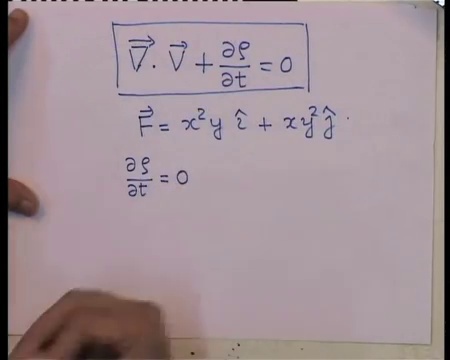 ∇⃗ · V⃗ + ∂ρ/∂t = 0
F⃗ = x²y î + xy² ĵ .
∂ρ/∂t = 0